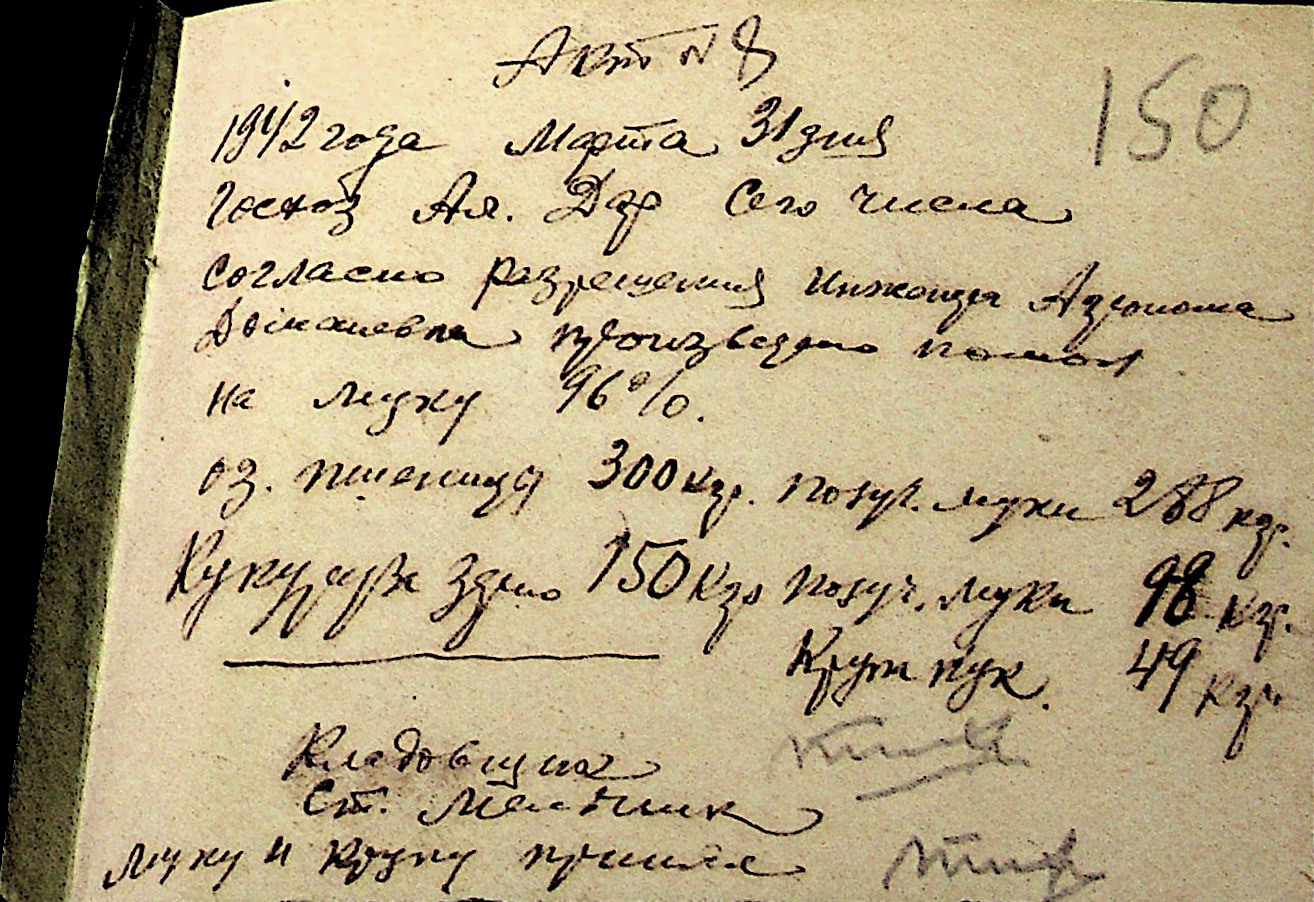 Акт № 8
150
1942 года Марта 31 дня
Госхоз Ал. Дар Сего числа
согласно разрешения Инженера Агронома
произведено помол
на муку 96%.
оз. пшеница 300 кгр. получ. муки 288 кгр.
Кукуруза здано 150 кгр получ. муки 98 кгр.
Круп кук. 49 кгр.
Кладовщик
Ст. Мельник
Муку и крупу принял